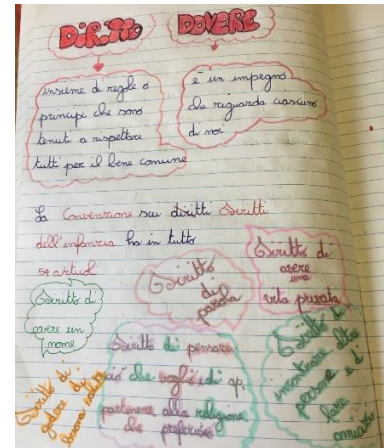 DIRITTO
DOVERE
insieme di regole o
principi che sono
tenuti a rispettare
tutti per il bene comune
è un impegno
che riguarda ciascuno
di noi
La Convenzione sui diritti Diritti
dell'infanzia ha in tutto
54 articoli
Diritto di
avere un
nome
Diritto
di
parola
Diritto di
avere
una
vita privata
Diritto di
godere di
buona salute
Diritto di pensare
ciò che voglio e di ap:
partenere alla religione
che preferisco
Diritto di
incontrare altre
persone e di
fare
amicizia